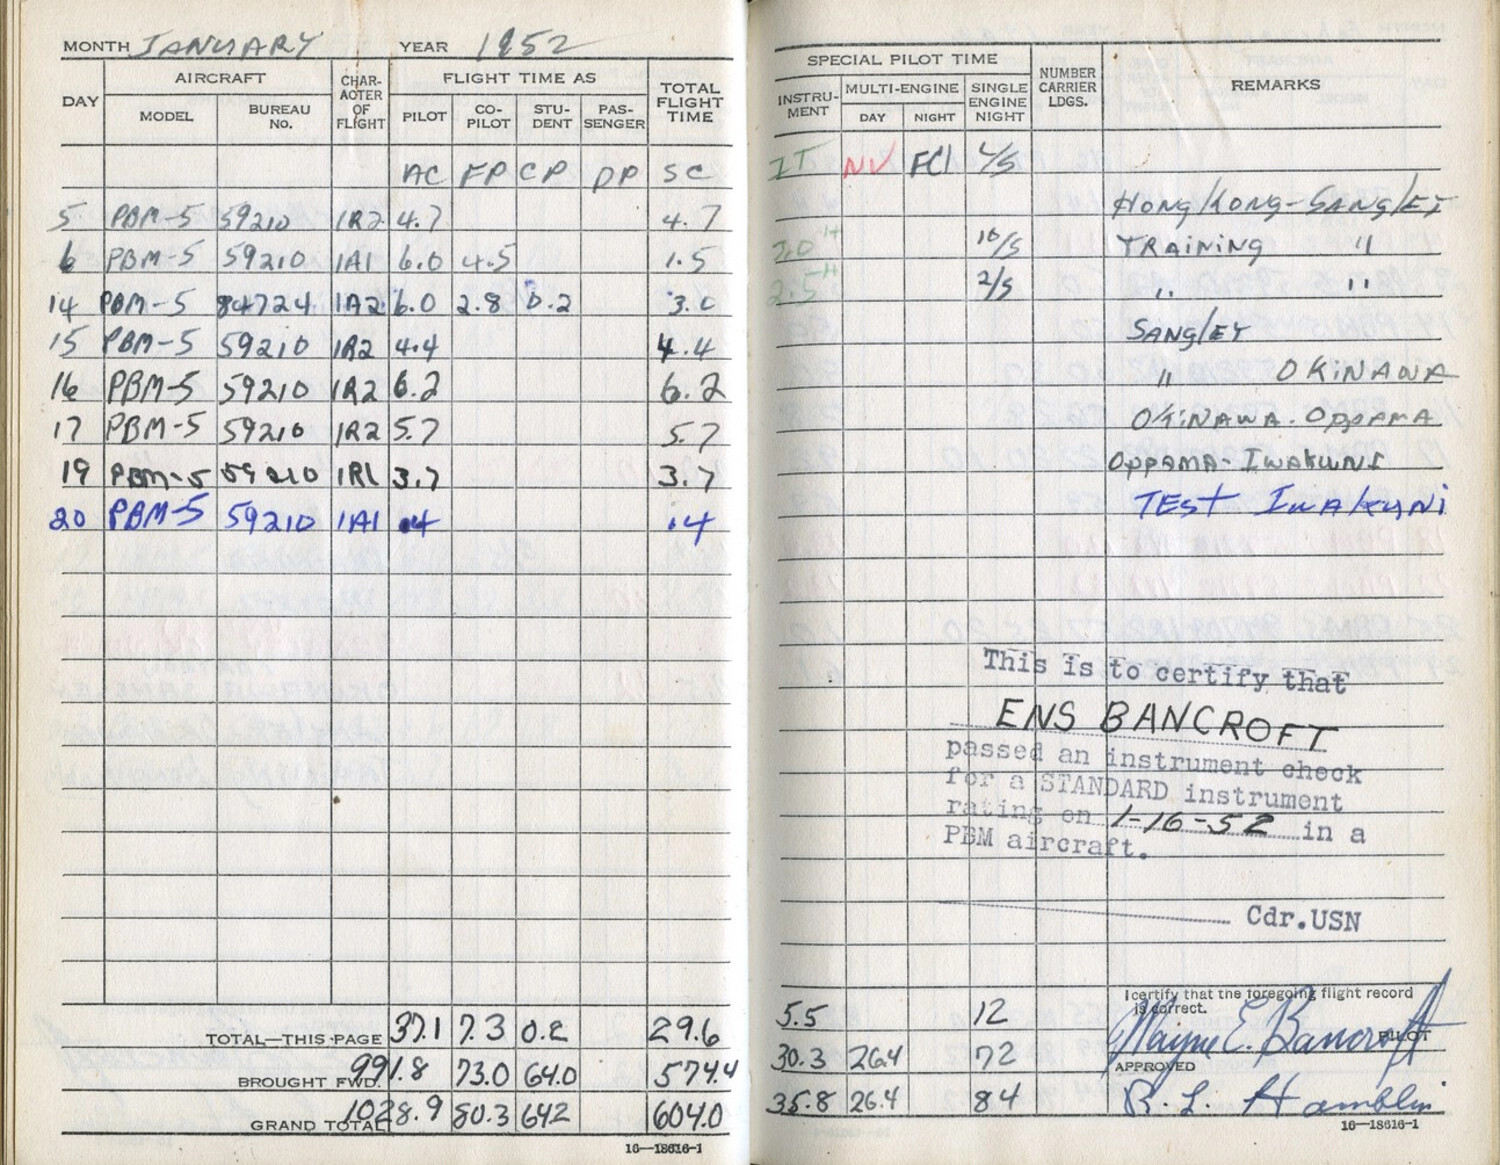 MONTH JANUARY YEAR 1952
DAY AIRCRAFT CHAR-ACTER OF FLIGHT FLIGHT TIME AS TOTAL FLIGHT TIME
MODEL BUREAU NO. PILOT CO-PILOT STU-DENT PAS-SENGER
AC FP CP DP SC
5 PBM-5 59210 1R2 4.7 4.7
6 PBM-5 59210 1A1 6.0 4.5 1.5
14 PBM-5 84724 1A2 6.0 2.8 0.2 3.0
15 PBM-5 59210 1R2 4.4 4.4
16 PBM-5 59210 1R2 6.2 6.2
17 PBM-5 59210 1R2 5.7 5.7
19 PBM-5 59210 1R1 3.7 3.7
20 PBM-5 59210 1A1 .4 .4
TOTAL—THIS PAGE 37.1 7.3 0.2 29.6
BROUGHT FWD. 991.8 73.0 64.0 574.4
GRAND TOTAL 1028.9 80.3 64.2 604.0
16—18616-1
SPECIAL PILOT TIME NUMBER CARRIER LDGS. REMARKS
INSTRU-MENT MULTI-ENGINE SINGLE ENGINE NIGHT
DAY NIGHT
IT NV FCI L/S
HONG KONG-SANGLEY
3.0 H 10/S TRAINING "
2.5 H 2/S " "
SANGLEY
" OKINAWA
OKINAWA. OPPAMA
OPPAMA-IWAKUNI
TEST IWAKUNI
This is to certify that
ENS BANCROFT
passed an instrument check
for a STANDARD instrument
rating on 1-16-52 in a
PBM aircraft.
Cdr.USN
I certify that the foregoing flight record
is correct.
5.5 12
Wayne E. Bancroft PILOT
30.3 26.4 72
APPROVED
35.8 26.4 84 R. L. Hamblin
16—18616-1